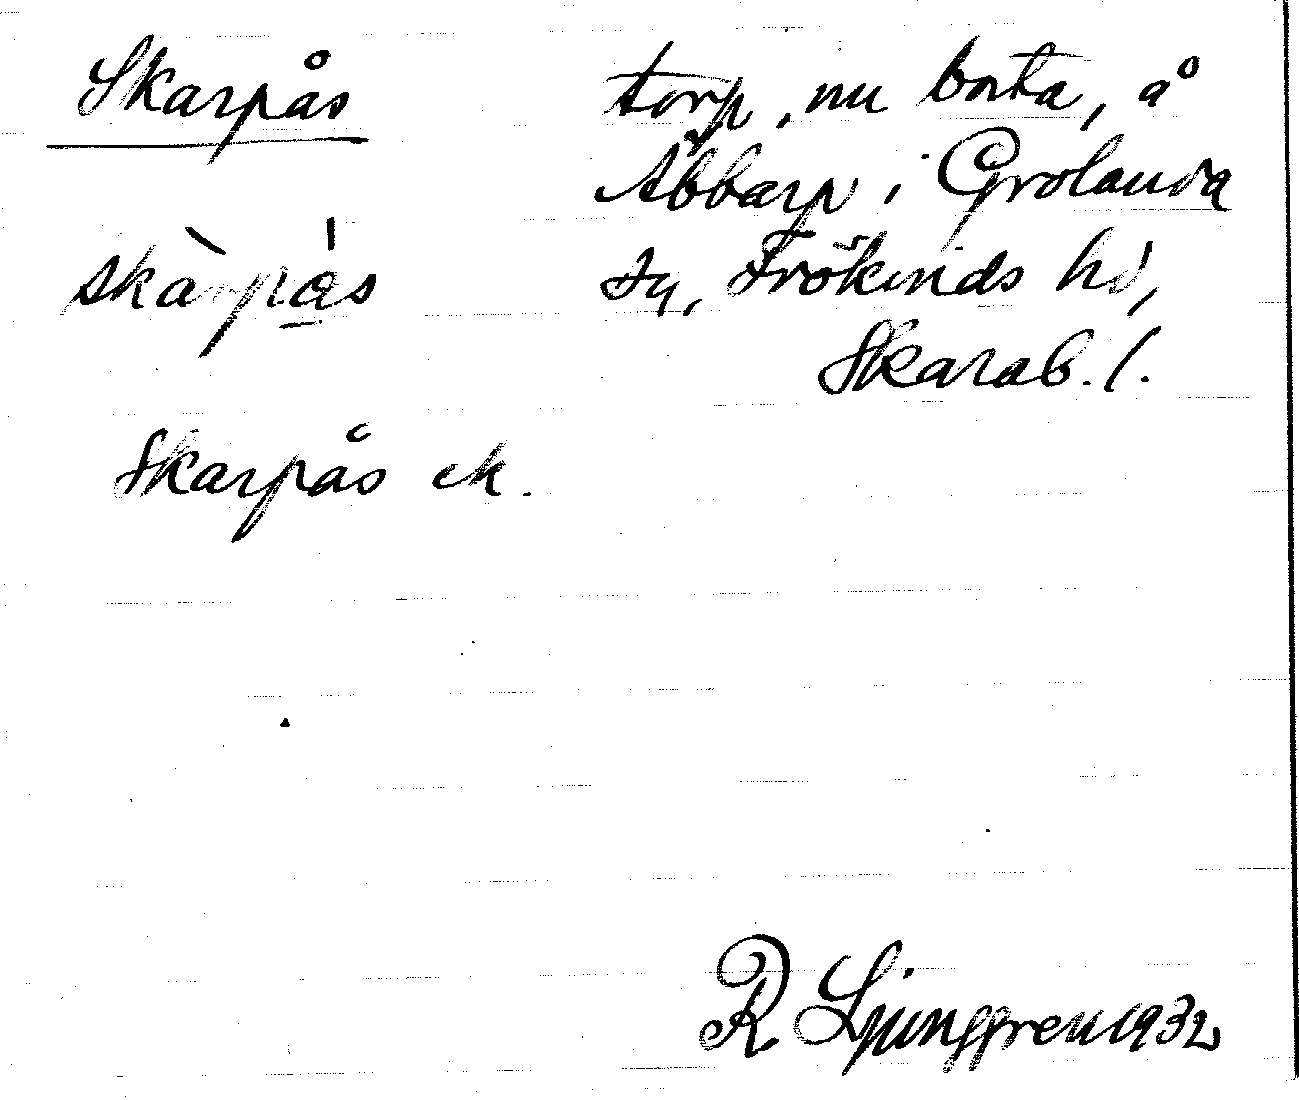 Skarpås torp, nu borta, å
Åbbarp i Grolanda
skàrpá̱s sn, Frökinds hd,
Skarab. l.
Skarpås ek.
R Ljunggren 1932